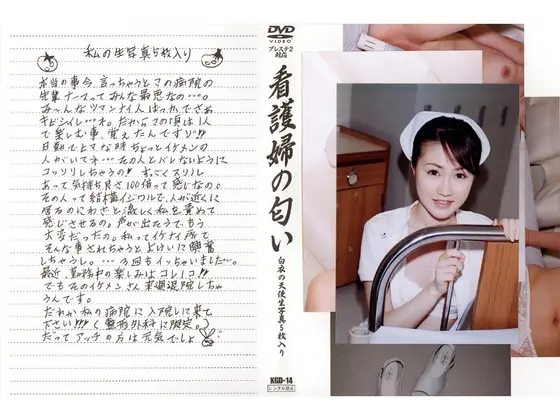 私の生写真5枚入り
本当の事今、言っちゃうとマの病院の
先輩ナースってみんな最悪なの…。
あ〜んなツマンナイ人ばっか。でさぁ
キビシイし…ネ。だからマの頃は1人
で楽しむ事、覚えたんですゾ!!
日勤でヒマな時ちょっとイケメンの
人がいてネ…他の人とバレないように
コッソリしちゃうの!! すっごくスリル
あって気持ち良さ100倍って感じなの。
その人って結構イジワルで、人が近くに
居るのにわざと激しく私を責めて
感じさせるの。声が出そうで、もう
大変だったの。私ってイケナイ所で
そんな事されちゃうとよけいに興奮
しちゃうし。…3回もイッちゃいました…。
最近、勤務中の楽しみはコレイコ!!
でもそのイケメンさん来週退院しちゃ
うんです。
だれか私の病院に入院しに来て
下さい!!!く整形外科に限定。
だってアッチの方は元気でしょ
DVD
VIDEO
プレステ2
対応
看護婦の匂い
白衣の天使生写真5枚入り
KGD-14
レンタル禁止